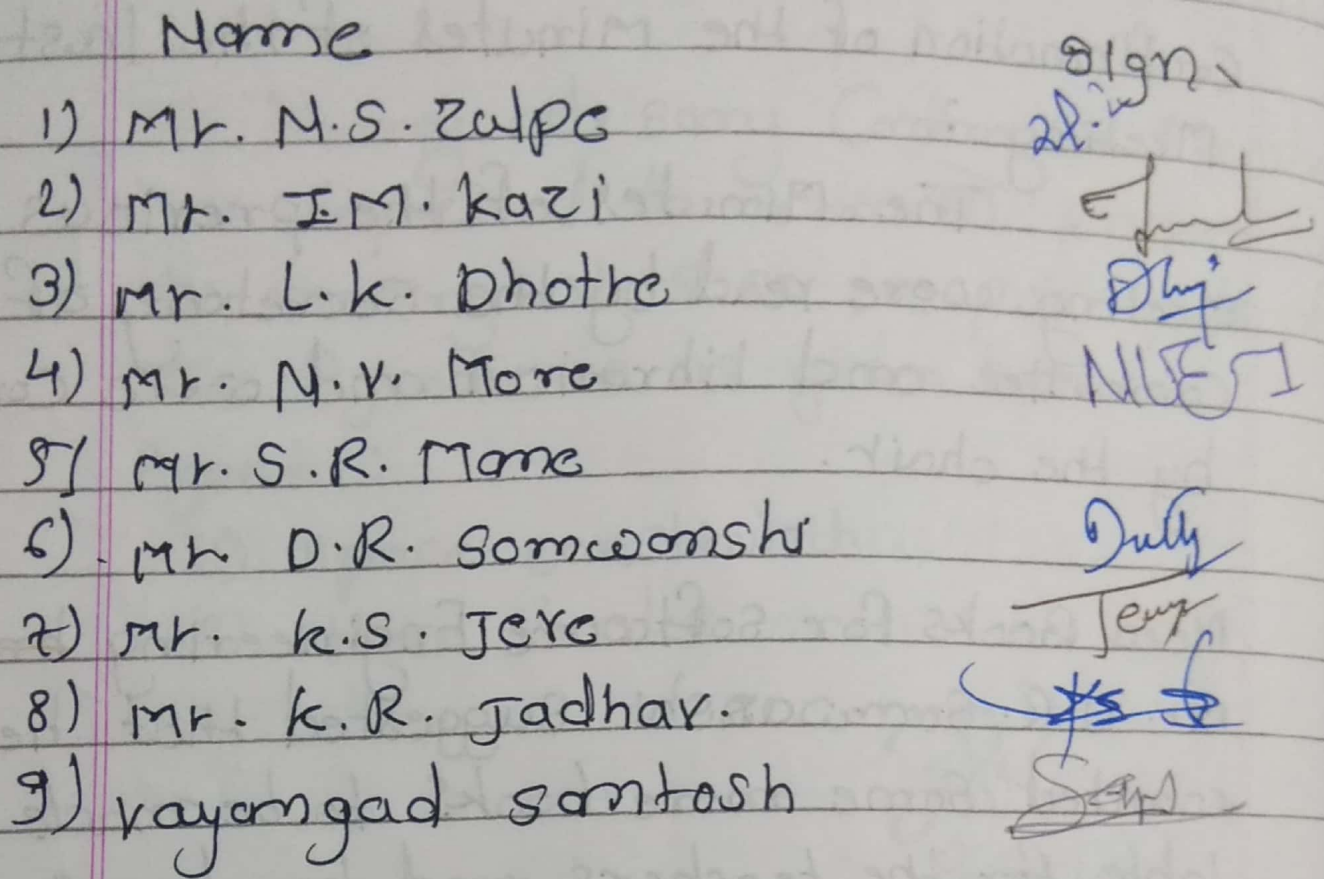 Name Sign.
1) Mr. N.S. Zulpe
2) Mr. I.M. Kazi
3) Mr. L.K. Dhotre
4) Mr. N.V. More
5) Mr. S.R. Mane
6) Mr. D.R. Somwanshi
7) Mr. K.S. Jere
8) Mr. K.R. Jadhav.
9) Vayangad Santosh